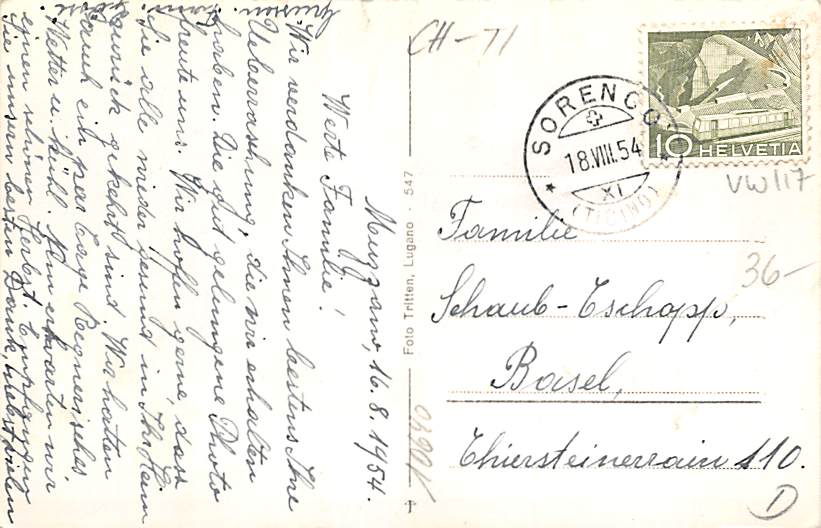 Muzzano, 16. 8. 1954.
Werte Familie!
Wir verdanken Ihnen bestens Ihre
Ueberraschung, die wir erhalten
haben. Die gut gelungene Photo
freute uns. Wir hofen gerne, dass
Sie alle wieder gesund in Ihr Heim
zurück gekehrt sind. Wir hatten
auch ein paar Tage Regnerisches
Wetter u. kühl. Nun erwarten wir
einen schönen Herbst. Empfangen
Sie unsern besten Dank, nebst vielen
Grüssen.
CH-TI
SORENGO
18.VIII.54
XI
(TICINO)
10 HELVETIA
VW 117
Familie
36-
Schaub-Tschopp,
Basel,
Thiersteinerrain 110.
D
Foto Tritten, Lugano · 547